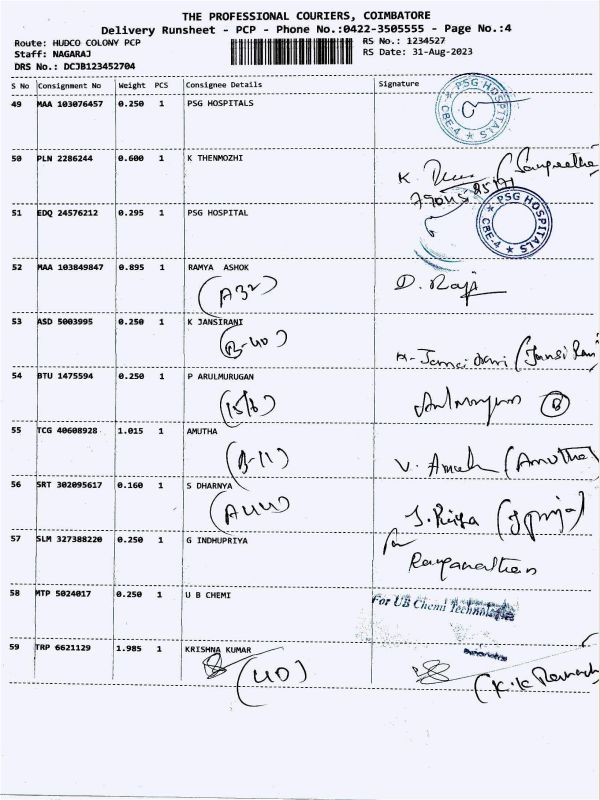 THE PROFESSIONAL COURIERS, COIMBATORE
Delivery Runsheet - PCP - Phone No.:0422-3505555 - Page No.:4
Route: HUDCO COLONY PCP
RS No.: 1234527
Staff: NAGARAJ
RS Date: 31-Aug-2023
DRS No.: DCJB123452704
S No Consignment No Weight PCS Consignee Details Signature
49 MAA 103076457 0.250 1 PSG HOSPITALS
PSG HOSPITALS
CBE-4
50 PLN 2286244 0.600 1 K THENMOZHI
K (Sangeetha
51 EDQ 24576212 0.295 1 PSG HOSPITAL
PSG HOSPITALS
CBE-4
52 MAA 103849847 0.895 1 RAMYA ASHOK
(A32) D. Raji
53 ASD 5003995 0.250 1 K JANSIRANI
(B-40)
54 BTU 1475594 0.250 1 P ARULMURUGAN
(15/6) B
55 TCG 40608928 1.015 1 AMUTHA
(B-11) V. (Amutha)
56 SRT 302095617 0.160 1 S DHARNYA
(A44)
57 SLM 327388220 0.250 1 G INDHUPRIYA
for
Ranganathan
58 MTP 5024017 0.250 1 U B CHEMI
For UB Chemi Technologies
59 TRP 6621129 1.985 1 KRISHNA KUMAR
(40) (K.K